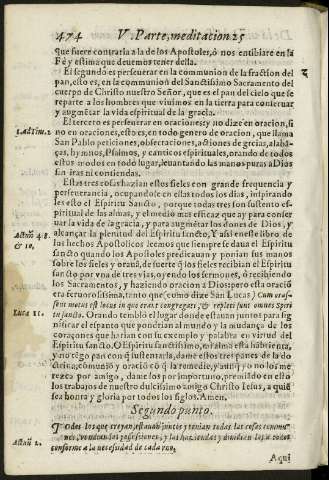 474 V. Parte, meditacion 25
que fuere contraria a la de los Apostoles, ò nos entibiare en la
Fè y estima que deuemos tener della.
El segundo es perseuerar en la communion de la fraction del
pan, esto es, en la communion del Sanctissimo Sacramento del
cuerpo de Christo nuestro Señor, que es el pan del cielo que se
reparte a los hombres que viuimos en la tierra para conseruar
y augmẽtar la vida espiritual de la gracia.
El tercero es perseuerar en oraciones: y no dize en oracion, si
no en oraciones, esto es, en todo genero de oracion, que llama
1. ad Tim. 2
San Pablo peticiones, obsecraciones, actiones de gracias, alabã-
ças, hymnos, Psalmos, y canticos espirituales, orando de todos
estos modos en todo lugar, leuantando las manos puras a Dios
sin iras ni contiendas.
Estas tres cosas hazian estos fieles con grande frequencia y
perseuerancia, ocupandose en ellas todos los dias, inspirando
les esto el Espiritu Sancto, porque todas tres son sustento es-
piritual de las almas, y el medio mas eficaz que ay para conser
uar la vida de la gracia, y para augmẽtar los dones de Dios, y
alcançar la plenitud del Espiritu Sancto. Y assi en este libro de
Actuũ 4. 8.
& 10,
los hechos Apostolicos leemos que siempre se daua el Espiritu
sancto quando los Apostoles predicauan y ponian sus manos
sobre los fieles y oraua, de suerte q̃ los fieles recibian el Espiritu
sancto por vna de tres vias, oyendo los sermones, ò recibiendo
los Sacramentos, y haziendo oracion a Dios: pero esta oraciõ
era feruorosissima, tanto que (como dize San Lucas) Cum oras-
sent motus est locus in quo erant congregati, & repleti sunt omnes Spiri
Luca 11.
tu sancto. Orando templò el lugar donde estauan juntos para sig
nificar el espanto que pondrian al mundo y la mudança de los
coraçones que harian con su exemplo y palabra en virtud del
Espiritu Sancto. O Espiritu sanctissimo, mi alma està hãbrienta,
y no tẽgo pan con q̃ sustentarla, dame estos tres panes de la do
ctrina, comuniõ y oraciõ con q̃ la remedie, y aunq̃ yo no los me
rezca por amigo, dame los por importuno, premiãdo en esto
los trabajos de nuestro dulcissimo amigo Christo Iesus, a quiẽ
sea honra y gloria por todos los siglos. Amen.
Segundo punto.
Todos los que creyan, estauan juntos y tenian todas las cosas comunes
Actuũ 2.
conforme a la necesidad de cada vno,
Aqui